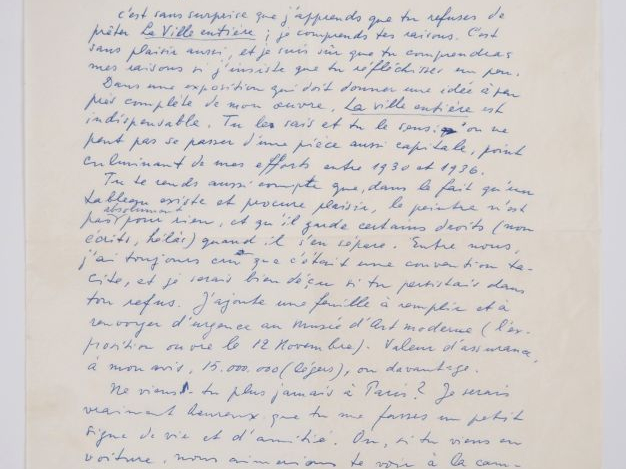 c'est sans surprise que j'apprends que tu refuses de
prêter La Ville entière ; je comprends tes raisons. C'est
sans plaisir aussi, et je suis sûr que tu comprendras
mes raisons si j'insiste que tu réfléchisses un peu.
Dans une exposition qui doit donner une idée à peu
près complète de mon œuvre, La ville entière est
indispensable. Tu le sais et tu le sens : on ne
peut pas se passer d'une pièce aussi capitale, point
culminant de mes efforts entre 1930 et 1936.
Tu te rends aussi compte que, dans le fait qu'un
tableau existe et procure plaisir, le peintre n'est
absolument
pas pour rien, et qu'il garde certains droits (non
écrits, hélas) quand il s'en sépare. Entre nous,
j'ai toujours cru que c'était une convention ta-
cite, et je serais bien déçu si tu persistais dans
ton refus. J'ajoute une feuille à remplir et à
renvoyer d'urgence au Musée d'Art moderne (l'ex-
position ouvre le 12 Novembre). Valeur d'assurance,
à mon avis, 15.000.000 (légers), ou davantage.
Ne viens-tu plus jamais à Paris ? Je serais
vraiment heureux que tu me fasses un petit
signe de vie et d'amitié. Ou, si tu viens en
voiture, nous aimerions te voir à la cam-